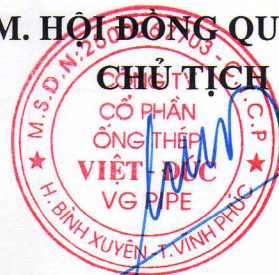 M. HỘI ĐỒNG QU
CHỦ TỊCH
M.S.D.N:
C.T.C.P
CÔNG TY
CỔ PHẦN
ỐNG THÉP
VIỆT - ĐỨC
VG PIPE
H. BÌNH XUYÊN - T. VĨNH PHÚC